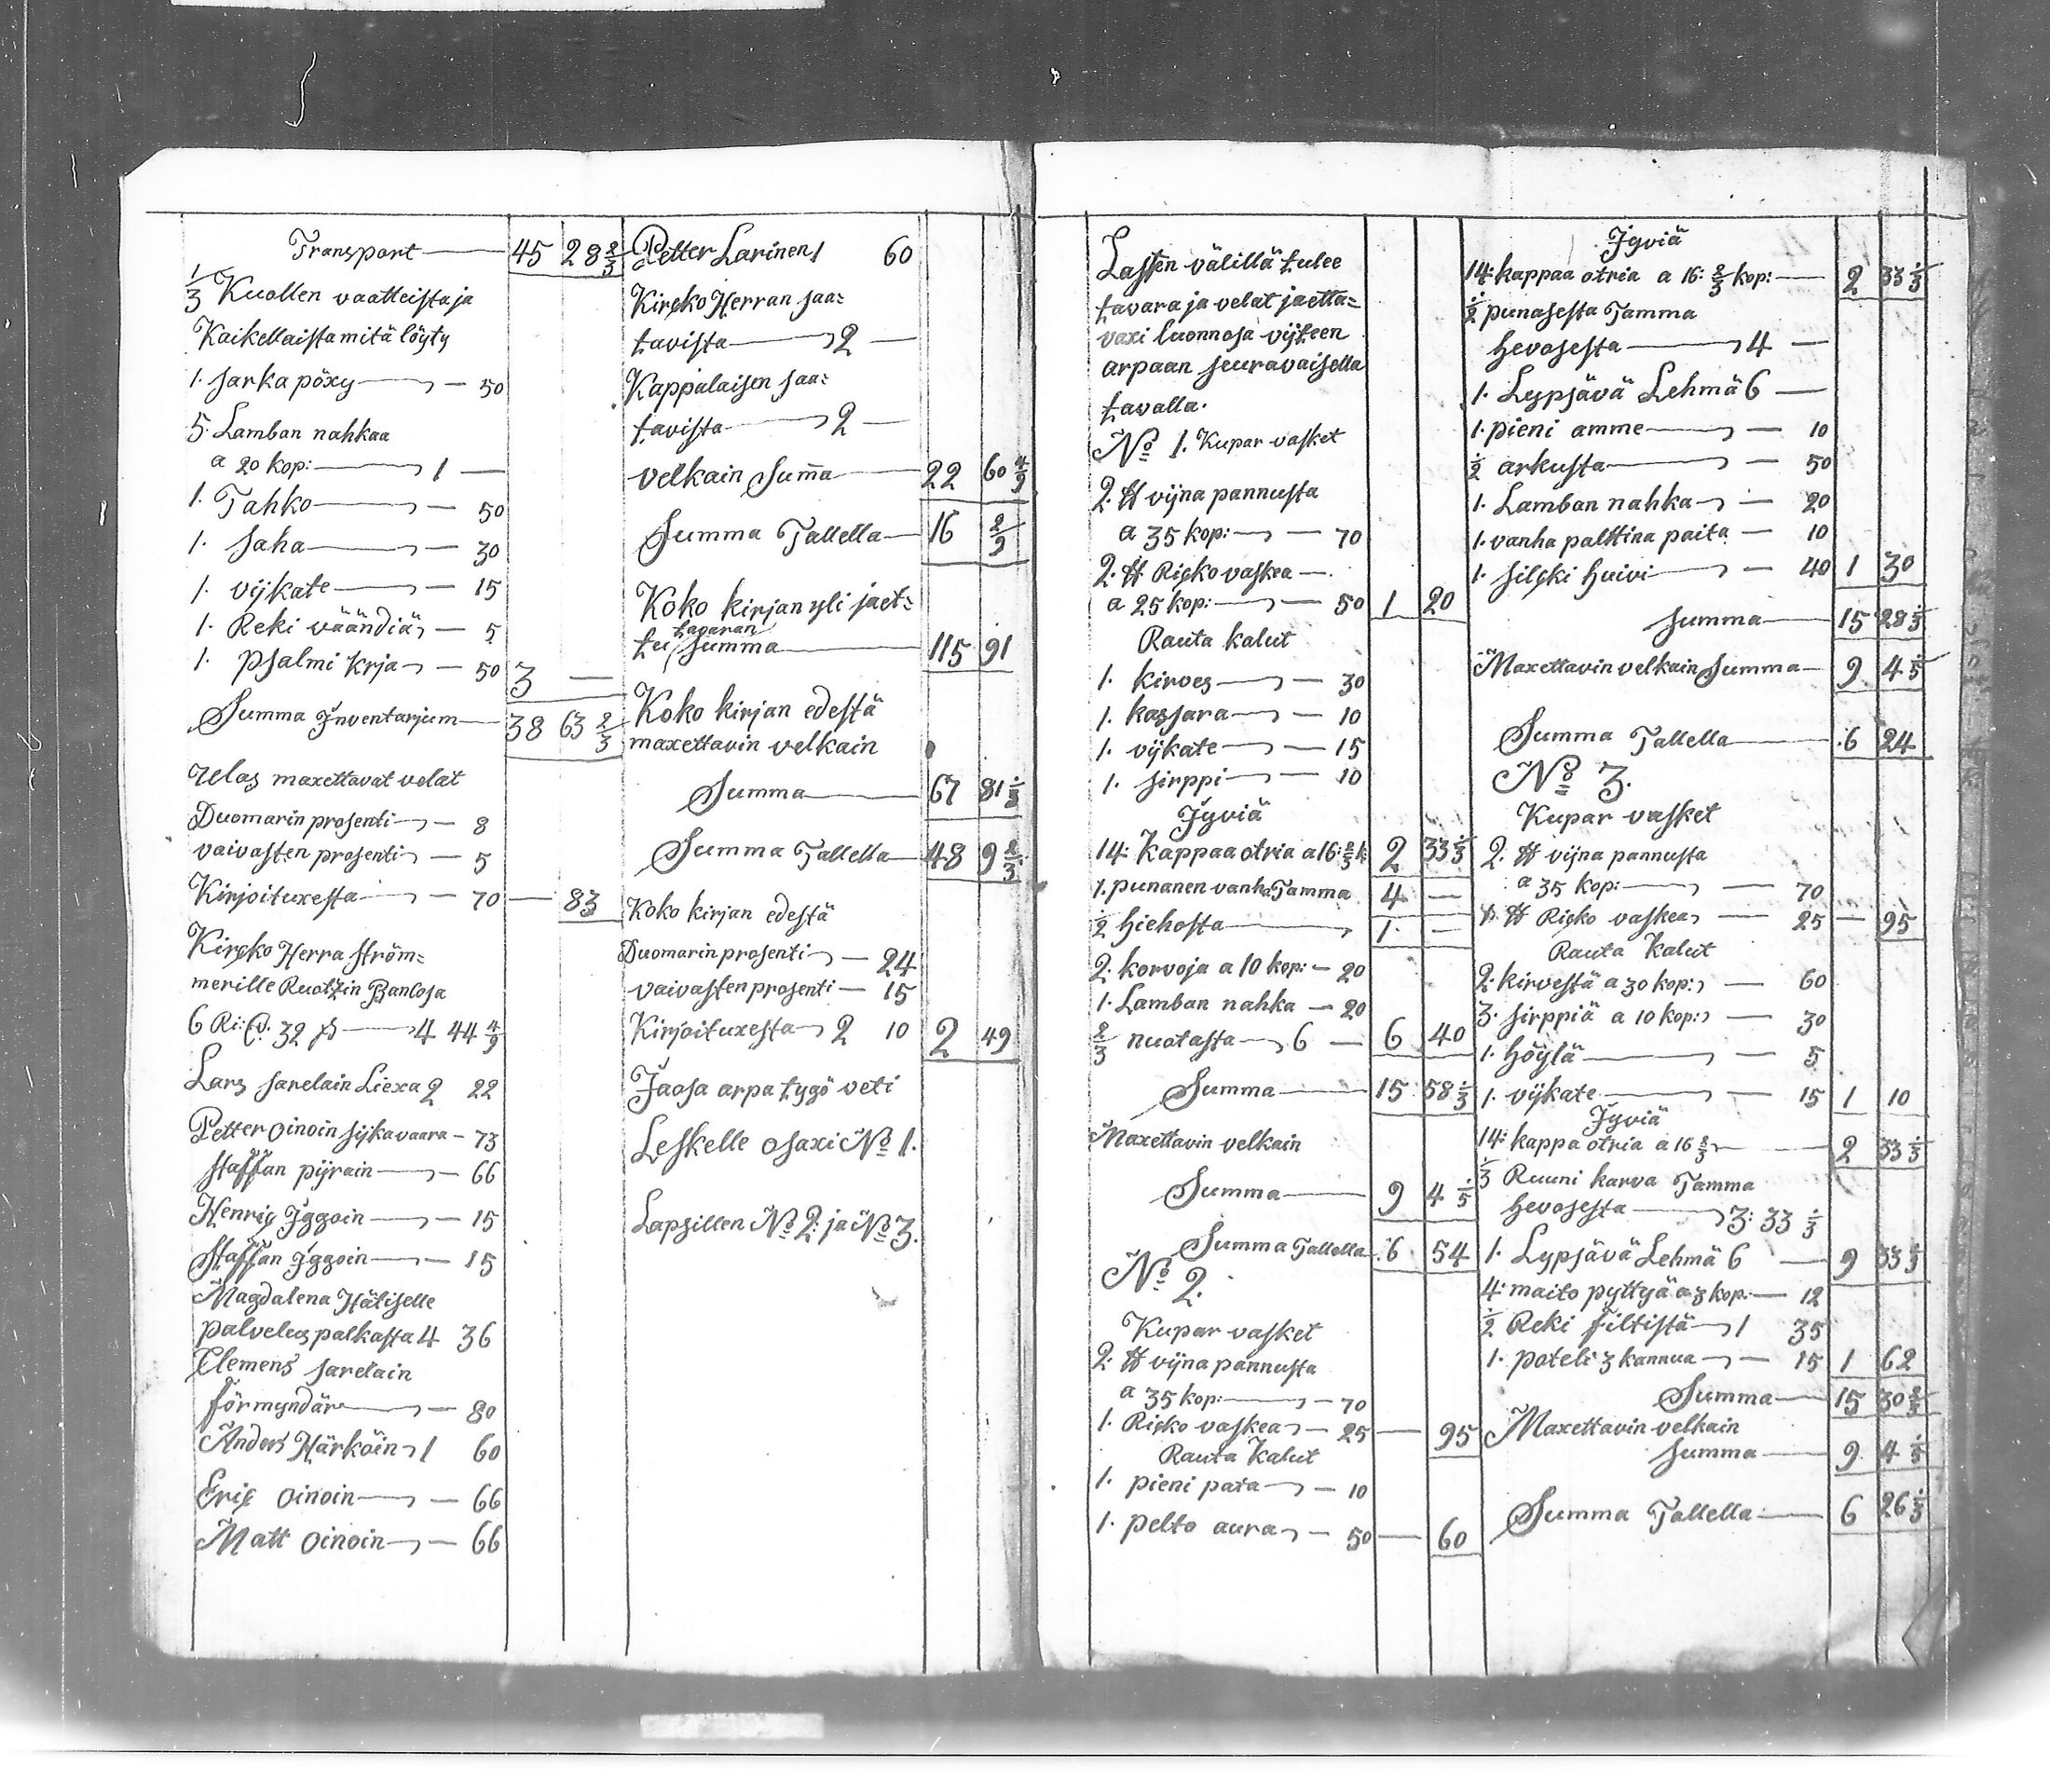 Transport — 45 28 2/3
1/3 Kuollen vaatteista ja
Kaikellaista mitä löyty
1. sarka pöxy — 50
5. Lamban nahkaa
a 20 kop: — 1 —
1. Tahko — 50
1. saha — 30
1. vijkate — 15
1. Reki väändiä — 5
1. psalmi krja — 50 3 —
Summa Inventarjum — 38 63 2/3
Ulos maxettavat velat
Duomarin prosenti — 8
vaivasten prosenti — 5
Kirjoituxesta — 70 — 83
Kircko Herra ström=
merille Ruotzin Bancosa
6 Ri: 32 — 4 44 4/9
Lars sarelain Liexa 2 22
Petter oinoin sijkavaara — 73
staffan pijrain — 66
Henric Iggoin — 15
Staffan Iggoin — 15
Magdalena Hätiselle
palvelus palkasta 4 36
Clemens sarelain
förmyndär — 80
Anders Härköin 1 60
Eric oinoin — 66
Matt oinoin — 66
Petter Larinen 1 60
Kircko Herran saa=
tavista — 2 —
Kappalaisen saa=
tavista — 2 —
velkain summa — 22 60 4/9
Summa Tallella — 16 2/9
Koko kirjan yli jaet=
tavaran
tu summa — 115 91
Koko kirjan edestä
maxettavin velkain
Summa — 67 81 1/3
Summa Tallella — 48 9 2/3
Koko kirjan edestä
Duomarin prosenti — 24
vaivasten prosenti — 15
Kirjoituxesta 2 10 2 49
Jaosa arpa tygö veti
Leskelle osaxi No 1.
Lapsillen No 2: ja No 3.
Lasten välillä tulee
tavara ja velat jaetta=
vaxi luonnosa vijteen
arpaan seuravaisella
tavalla.
No 1. Kupar vasket
2. ℔ vijna pannusta
a 35 kop: — 70
2. ℔ Ricko vaskea —
a 25 kop: — 50 1 20
Rauta kalut
1. kirves — 30
1. kassara — 10
1. vijkate — 15
1. sirppi — 10
Jyviä
14: Kappaa otria a 16: 2/3 k: 2 33 1/3
1. punanen vanha Tamma 4 —
1/2 hiehosta — 1 —
2. korvoja a 10 kop: — 20
1. Lamban nahka — 20
2/3 nuotasta — 6 — 6 40
Summa — 15 58 1/3
Maxettavin velkain
Summa — 9 4 1/5
Summa Tallella 6 54
No 2.
Kupar vasket
2: ℔ vijna pannusta
a 35 kop: — 70
1. Ricko vaskea — 25 — 95
Rauta Kalut
1. pieni pata — 10
1. pelto aura — 50 — 60
Jyviä
14: kappaa otria a 16: 2/3 kop: — 2 33 1/3
1/2 punasesta Tamma
hevosesta — 4 —
1. Lypsävä Lehmä 6 —
1. pieni amme — 10
1/2 arkusta — 50
1. Lamban nahka — 20
1. vanha palttina paita — 10
1. silcki huivi — 40 1 30
summa — 15 28 1/3
Maxettavin velkain Summa — 9 4 1/5
Summa Tallella — 6 24
No 3.
Kupar vasket
2. ℔ vijna pannusta
a 35 kop: — 70
1. ℔ Ricko vaskea — 25 — 95
Rauta Kalut
2: kirvestä a 30 kop: — 60
3. sirppiä a 10 kop: — 30
1. höylä — 5
1. vijkate — 15 1 10
Jyviä
14: kappa otria a 16 2/3 — 2 33 1/3
1/3 Ruuni karva Tamma
hevosesta — 3: 33 1/3
1. Lypsävä Lehmä 6 — 9 33 1/3
4: maito pyttyä a 3 kop: — 12
1/2 Reki filtistä — 1 35
1. poteli 3 kannua — 15 1 62
Summa — 15 30 2/3
Maxettavin velkain
summa — 9 4 1/5
Summa Tallella — 6 26 1/3